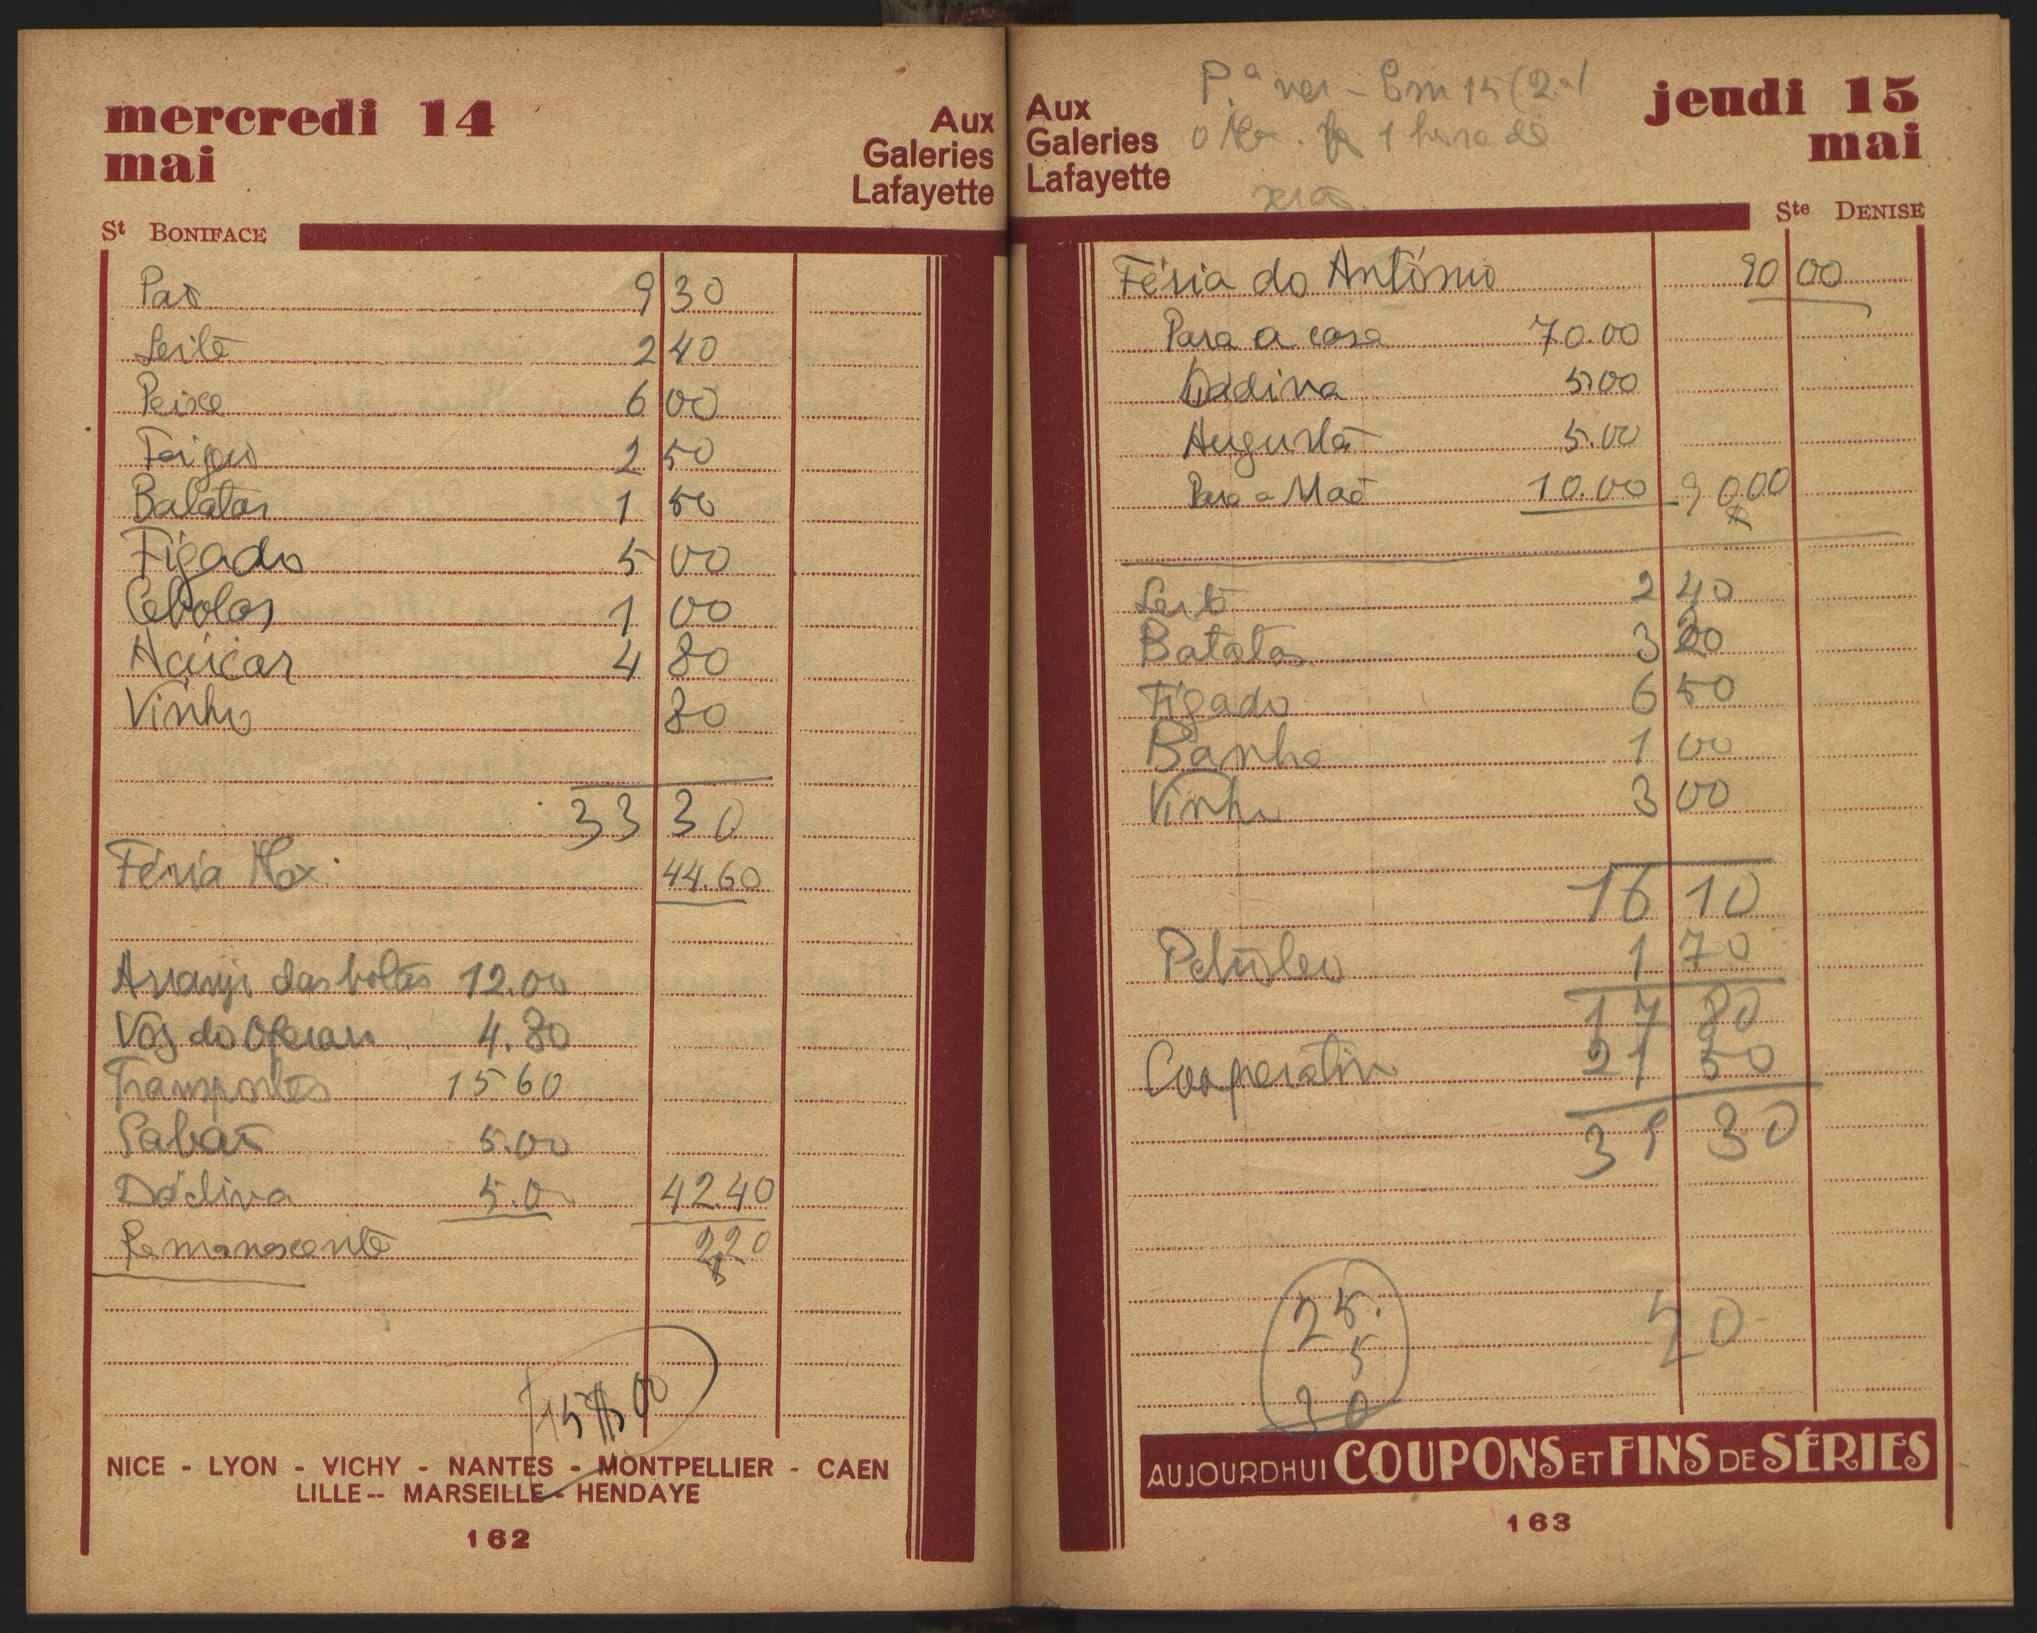 mercredi 14
mai
Aux
Galeries
Lafayette
St BONIFACE
Pão 9 30
Leite 2 40
Peixe 6 00
Feijão 2 50
Batatas 1 50
Fígado 5 00
Cebolas 1 00
Açúcar 4 80
Vinho 80
33 30
Féria 44.60
Arranjo das botas 12.00
Voz do Operario 4.80
Transportes 15 60
Sabão 5.00
Dádiva 5.00 42.40
Remanescente 2$20
15$00
NICE - LYON - VICHY - NANTES - MONTPELLIER - CAEN
LILLE -- MARSEILLE - HENDAYE
162
Aux
Galeries
Lafayette
jeudi 15
mai
1 hora de
Ste DENISE
Féria do António 90 00
Para a casa 70.00
Dádiva 5.00
Augusta 5.00
Para a Mãe 10.00 90$00
Leite 2 40
Batatas 3 20
Fígado 6 50
Banha 1 00
Vinho 3 00
16 10
Petróleo 1 70
17 80
Cooperativa 21 50
39 30
25.
5
30
20
AUJOURDHUI COUPONS ET FINS DE SÉRIES
163